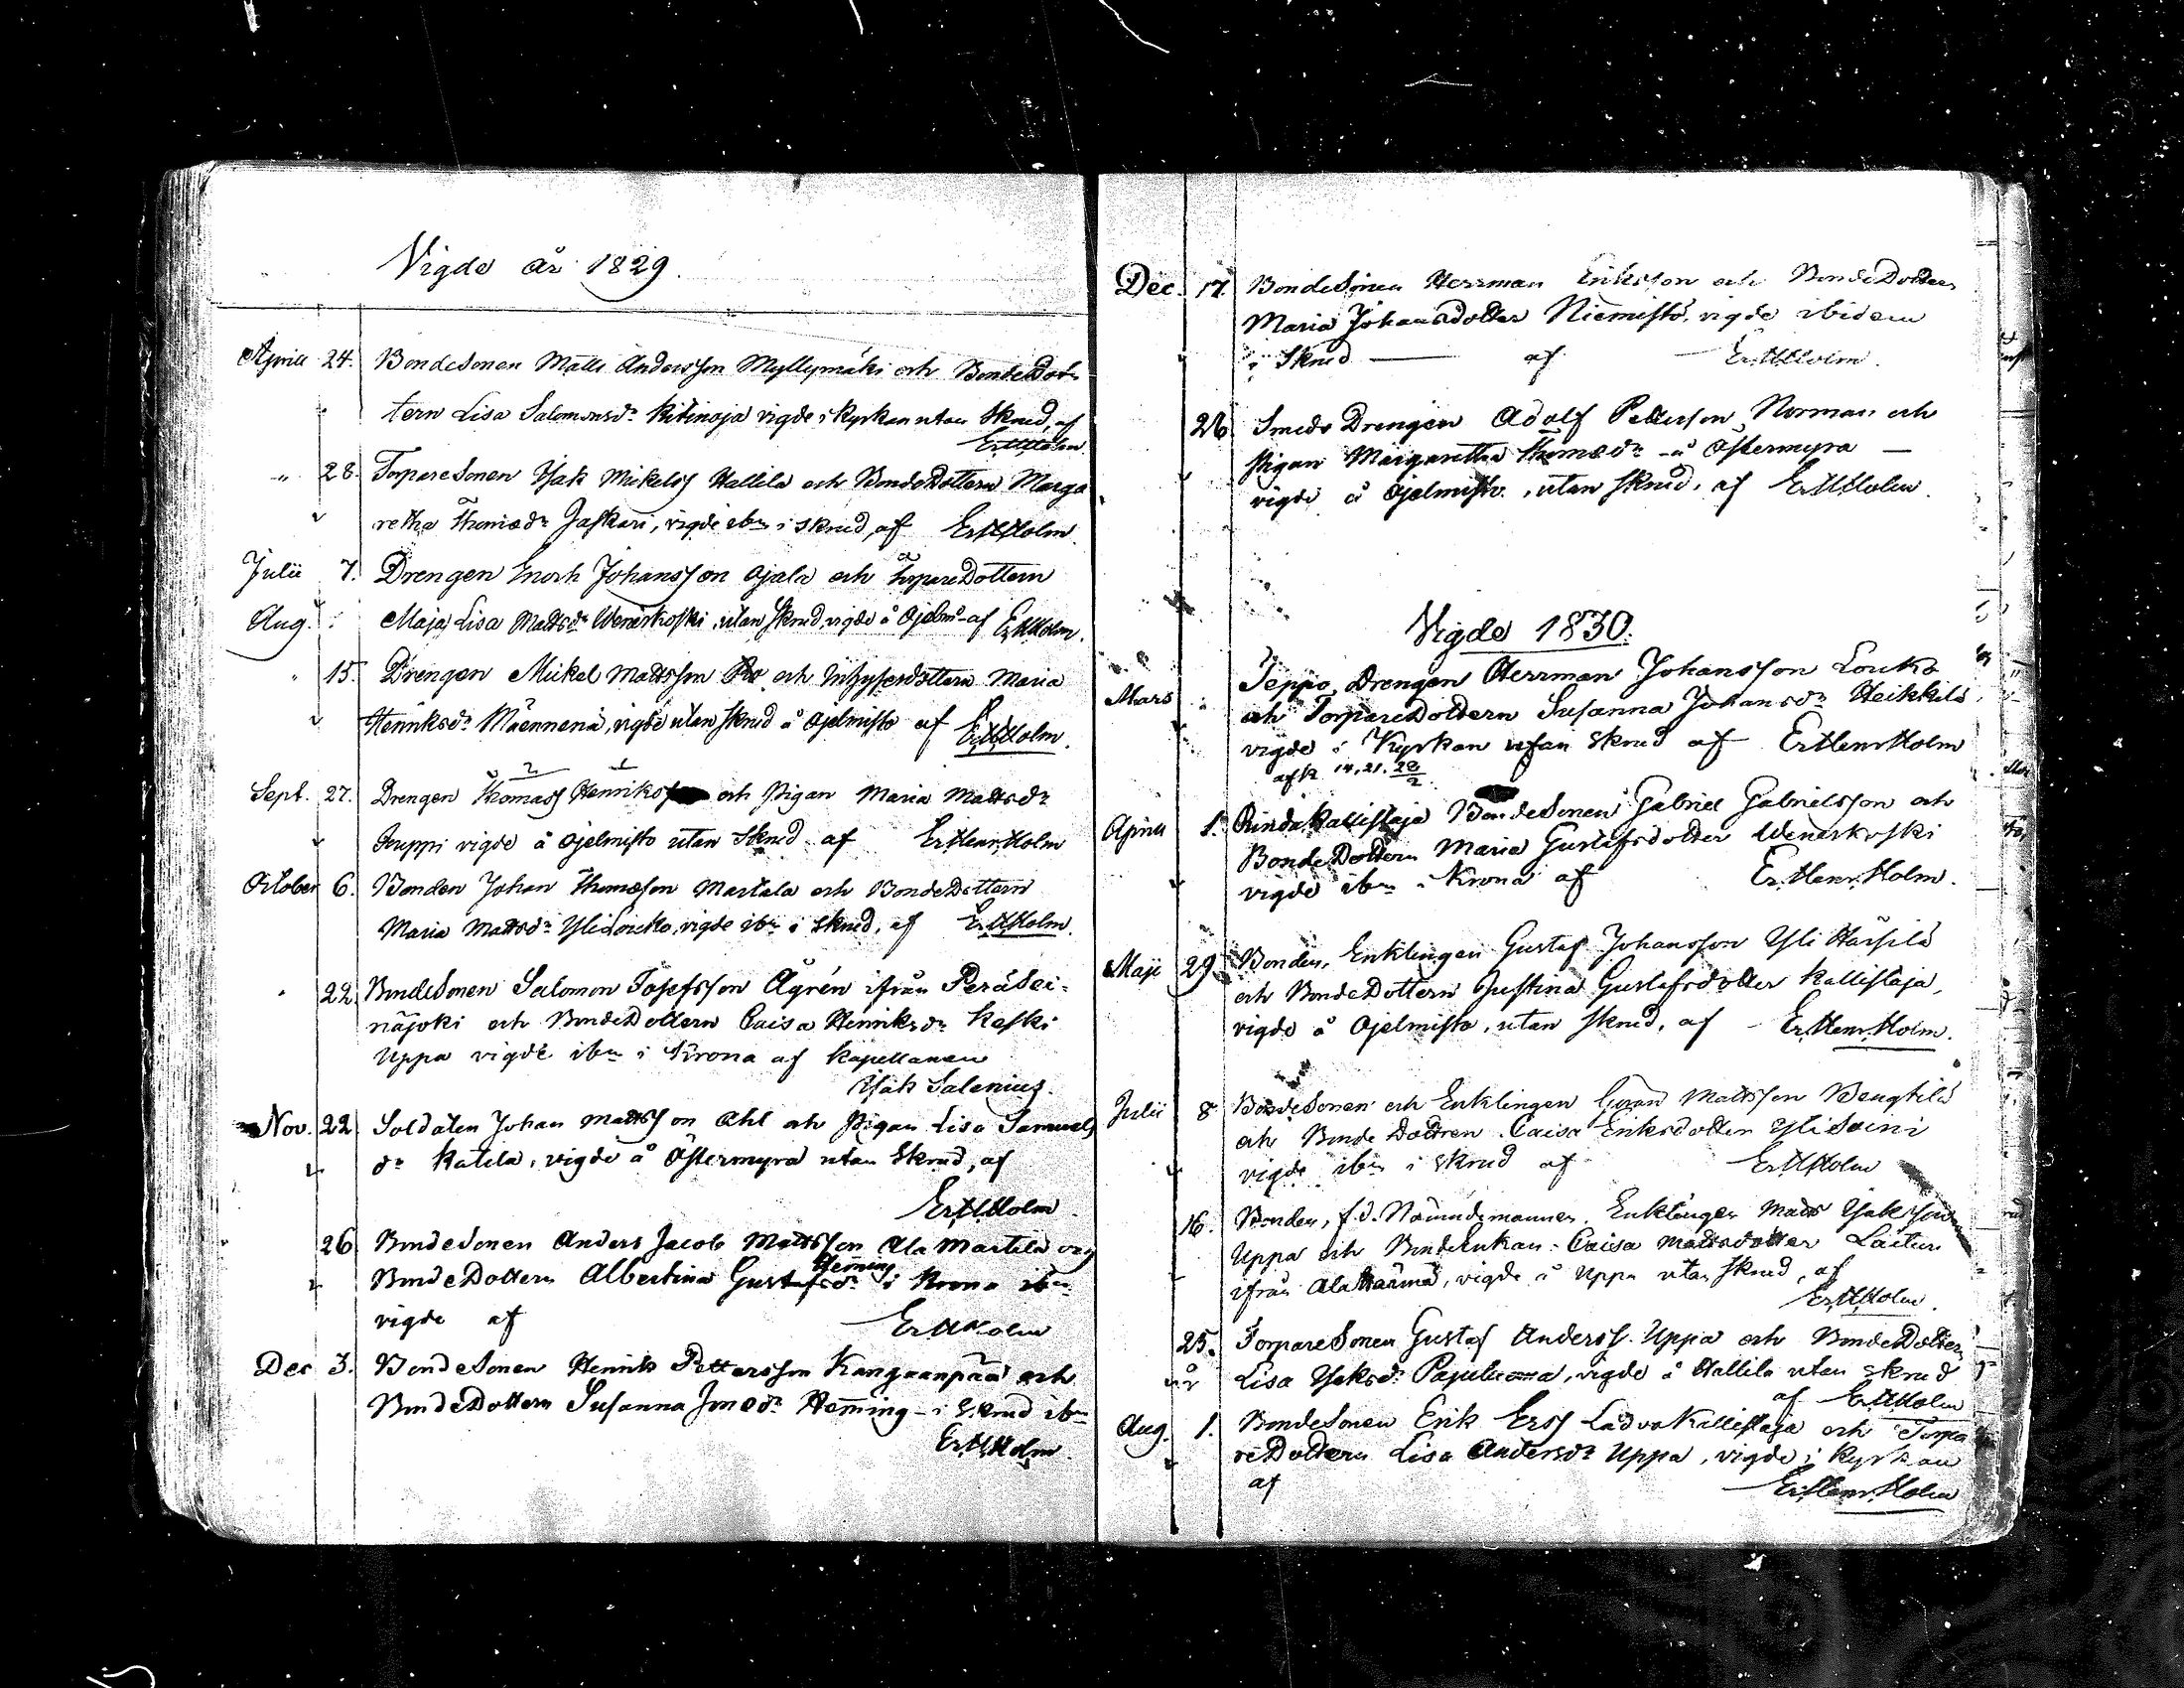 Vigde år 1829.
Aprill 24. BondeSonen Matts Andersson Myllymäki och BondeDot-
tern Lisa Salomonsdr Kitinoja vigde i Kyrkan utan Skrud, af
ErHHolm
" 28. TorpareSonen Isak Mickelss Hallila och BondeDottern Marga
retha Thomædr Jaskari, vigde ibm i skrud, af ErHHolm.
Julii 7. Drengen Enoch Johansson Ojala och TorpareDottern
Aug. Maja Lisa Mattsdr Wenäskoski, utan Skrud, vigde å Ojelmo af ErHHolm.
" 15. Drengen Mickel Mattsson och Inhysesdottern Maria
Henriksdr Mäennenä, vigde utan skrud å Ojelmisto af ErHHolm.
Sept. 27. Drengen Thomass Henriks och Pigan Maria Mattsdr
Jouppi vigde å Ojelmisto utan Skrud af ErHenrHolm
October 6. Bonden Johan Thomæson Martala och BondeDottern
Maria Mattsdr YliLouko, vigde ibm i skrud, af ErHHolm.
" 22. BondeSonen Salomon Josefsson Ågrén ifrån Peräsei-
näjoki och BondeDottern Caisa Henriksdr Kaski
Uppa vigde ibm i Krona af Kapellanen
Isak Salenius.
Nov. 22 Soldaten Johan Mattsson Ahl och Pigan Lisa Samuels
dr Katila, vigde å Östermyra utan Skrud, af
ErHHolm
26 BondeSonen Anders Jacob Mattsson Ala Martila och
Heming
BondeDottern Albertina Gustafsdr i Krona ibm
vigde af ErHHolm
Dec 3. BondeSonen Henrik Pettersson Kangaanpää och
BondeDottern Susanna Jonædr Heming i Skrud ibm
ErHHolm.
Dec. 17. BondeSonen Herrman Eriksson och BondeDottern
Maria Johansdotter Niemistö, vigde ibidem
i Skrud af ErHHolm.
26 Smeds Drengen Adolf Petterson Norman och
Pigan Margaretha Thomædr å Östermyra
vigde å Ojelmisto, utan skrud, af ErHHolm.
Vigde 1830.
Mars Seppo, Drengen Herrman Johansson Louko
och TorpareDottern Susanna Johansdr Heikkilä
vigde i Kyrkan utan Skrud af ErHenrHolm
afk 14. 21. 28/2.
Aprill 1. Rinda Kallistaja BondeSonen Gabriel Gabrielsson och
BondeDottern Maria Gustafsdotter Wenäskoski
vigde ibm i Krona af ErHenrHolm.
Maji 29 Bonden, Enklingen Gustaf Johansson Yli Härsilä
och BondeDottern Justina Gustafsdotter Kallistaja,
vigde å Ojelmisto, utan skrud, af ErHenrHolm.
Julii 8 BondeSonen och Enklingen Göran Mattsson Bengtilä
och Bonde Dottren Caisa Eriksdotter YliSoini
vigde ibm i skrud af ErHHolm
16. Bonden, f.d. Nämndemannen Enklingen Matts Isaksson
Uppa och BondeEnkan Caisa Mattsdotter
ifrån Ala Härmä, vigde å Uppa utan skrud, af
ErHHolm.
25. TorpareSonen Gustaf Anderss. Uppa och BondeDottern
Lisa Isaksdr Pajuluoma, vigde å Hallila utan skrud
af ErHHolm
Aug. 1. BondeSonen Erik Erss LadvaKallistaja och Torpa
reDottern Lisa Andersdr Uppa, vigde i Kyrkan
af ErHenrHolm